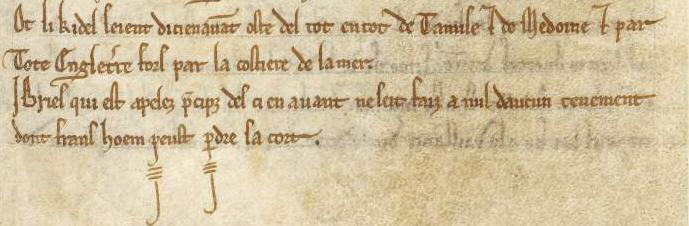 Et li kidel seient dici en auant oste del tot en tot de Tamise ⁊ de Medoine ⁊ par
Tote Engletꝛe foꝛs par la costiere de la mer.
Li Bries qui est apelez p̄cipe desci en auant ne seit faiz a nul daucun tenement
dont frans hoem peust ꝑdre sa coꝛt.